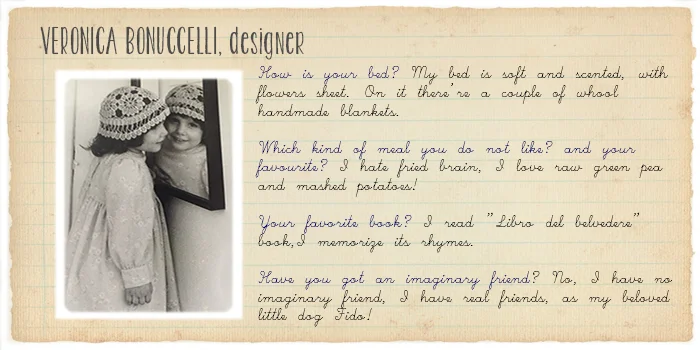 VERONICA BONUCCELLI, designer
How is your bed? My bed is soft and scented, with
flowers sheet. On it there're a couple of whool
handmade blankets.
Which kind of meal you do not like? and your
favourite? I hate fried brain, I love raw green pea
and mashed potatoes!
Your favorite book? I read "Libro del belvedere"
book,I memorize its rhymes.
Have you got an imaginary friend? No, I have no
imaginary friend, I have real friends, as my beloved
little dog Fido!